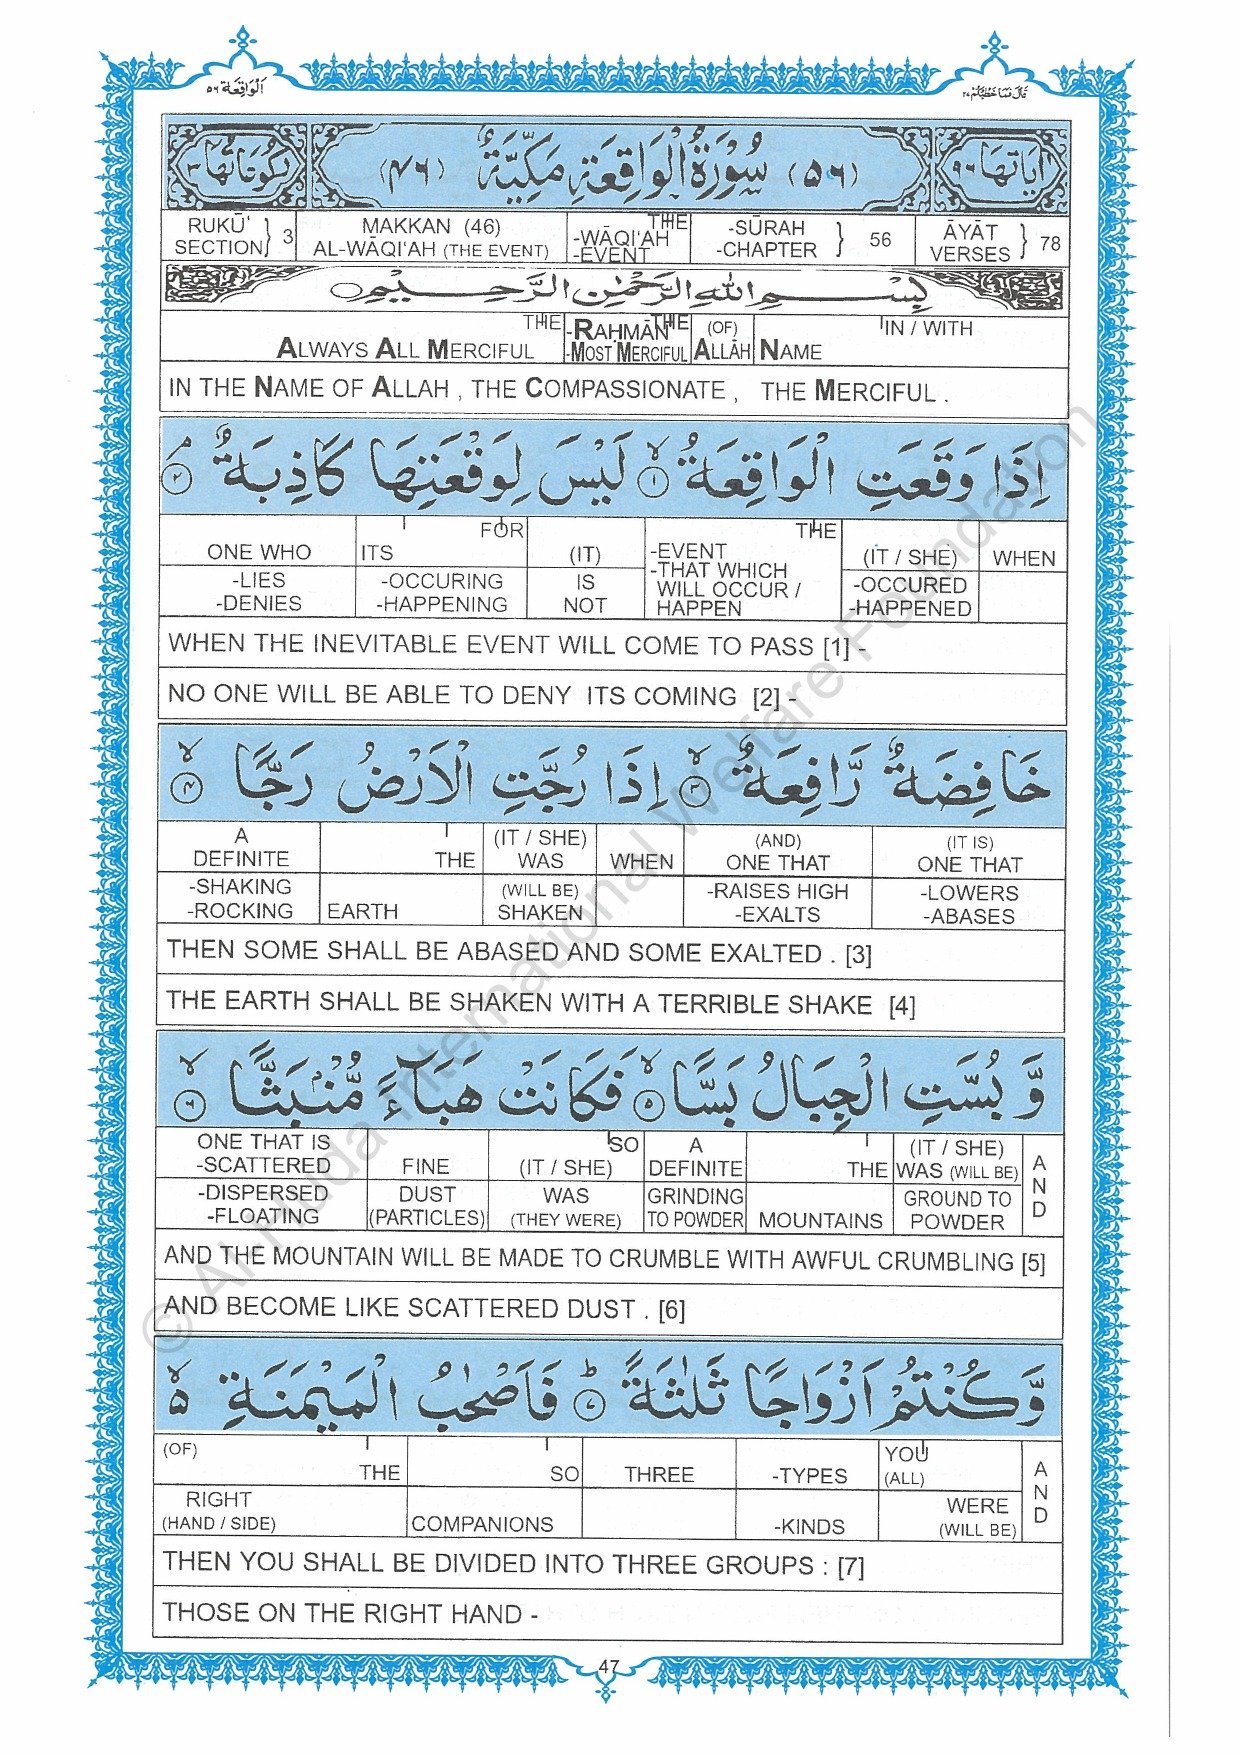 قَالَ فَمَا خَطْبُكُمْ ٢٧
اَلْوَاقِعَة ٥٦
اٰيَاتُهَا ٩٦ (٥٦) سُوْرَةُ الْوَاقِعَةِ مَكِّيَّةٌ (٤٦) رُكُوْعَاتُهَا ٣
RUKŪ' SECTION} 3 MAKKAN (46) AL-WĀQI'AH (THE EVENT) THE -WĀQI'AH -EVENT -SŪRAH -CHAPTER } 56 ĀYĀT VERSES } 78
بِسْمِ اللهِ الرَّحْمٰنِ الرَّحِيْمِ
THE THE (OF) IN / WITH
ALWAYS ALL MERCIFUL -RAHMĀN -MOST MERCIFUL ALLĀH NAME
IN THE NAME OF ALLAH , THE COMPASSIONATE , THE MERCIFUL .
اِذَا وَقَعَتِ الْوَاقِعَةُ ١ لَيْسَ لِوَقْعَتِهَا كَاذِبَةٌ ٢
FOR THE
ONE WHO ITS (IT) -EVENT (IT / SHE) WHEN
-LIES -OCCURING IS -THAT WHICH WILL OCCUR / -OCCURED
-DENIES -HAPPENING NOT HAPPEN -HAPPENED
WHEN THE INEVITABLE EVENT WILL COME TO PASS [1] -
NO ONE WILL BE ABLE TO DENY ITS COMING [2] -
خَافِضَةٌ رَّافِعَةٌ ٣ اِذَا رُجَّتِ الْاَرْضُ رَجًّا ٤
A (IT / SHE) (AND) (IT IS)
DEFINITE THE WAS WHEN ONE THAT ONE THAT
-SHAKING (WILL BE) -RAISES HIGH -LOWERS
-ROCKING EARTH SHAKEN -EXALTS -ABASES
THEN SOME SHALL BE ABASED AND SOME EXALTED . [3]
THE EARTH SHALL BE SHAKEN WITH A TERRIBLE SHAKE [4]
وَّ بُسَّتِ الْجِبَالُ بَسًّا ٥ فَكَانَتْ هَبَآءً مُّنْۢبَثًّا ٦
ONE THAT IS SO A (IT / SHE)
-SCATTERED FINE (IT / SHE) DEFINITE THE WAS (WILL BE) AND
-DISPERSED DUST WAS GRINDING GROUND TO
-FLOATING (PARTICLES) (THEY WERE) TO POWDER MOUNTAINS POWDER
AND THE MOUNTAIN WILL BE MADE TO CRUMBLE WITH AWFUL CRUMBLING [5]
AND BECOME LIKE SCATTERED DUST . [6]
وَّكُنْتُمْ اَزْوَاجًا ثَلٰثَةً ٧ فَاَصْحٰبُ الْمَيْمَنَةِ
(OF) YOU
THE SO THREE -TYPES (ALL) AND
RIGHT WERE
(HAND / SIDE) COMPANIONS -KINDS (WILL BE)
THEN YOU SHALL BE DIVIDED INTO THREE GROUPS : [7]
THOSE ON THE RIGHT HAND -
47
© Al-Huda International Welfare Foundation